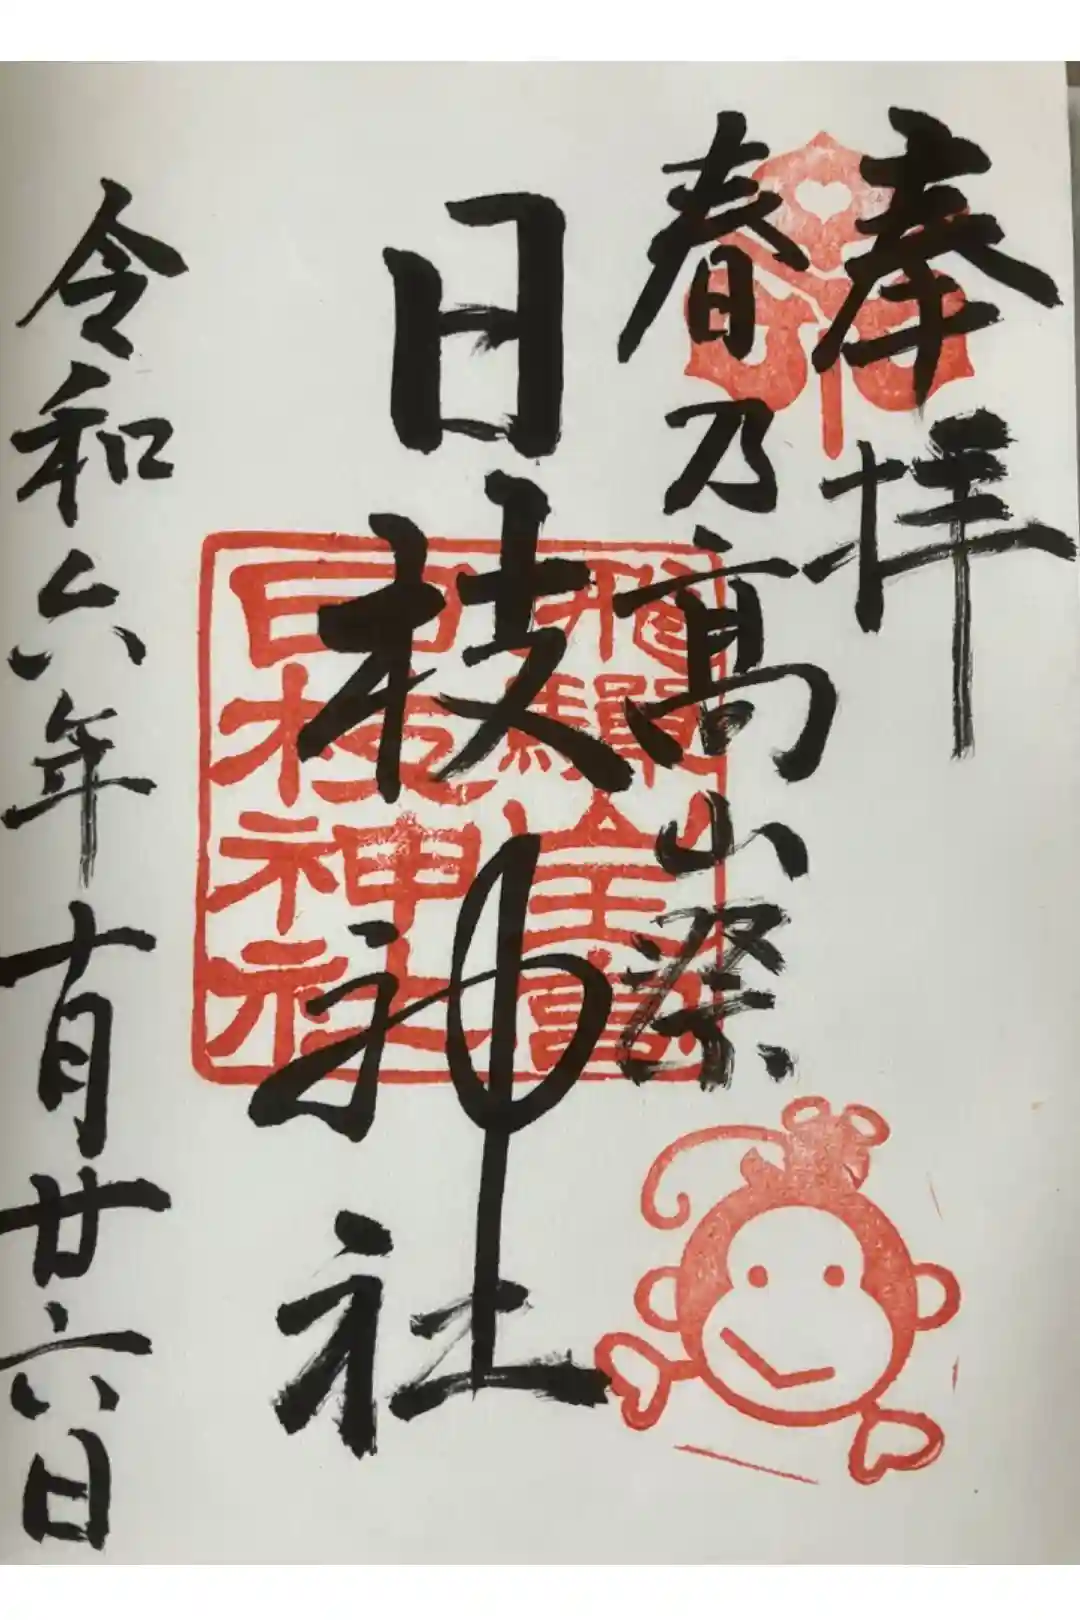 奉拝
春乃高山祭
日枝神社
飛驒山王宮
日枝神社
令和六年十月廿六日